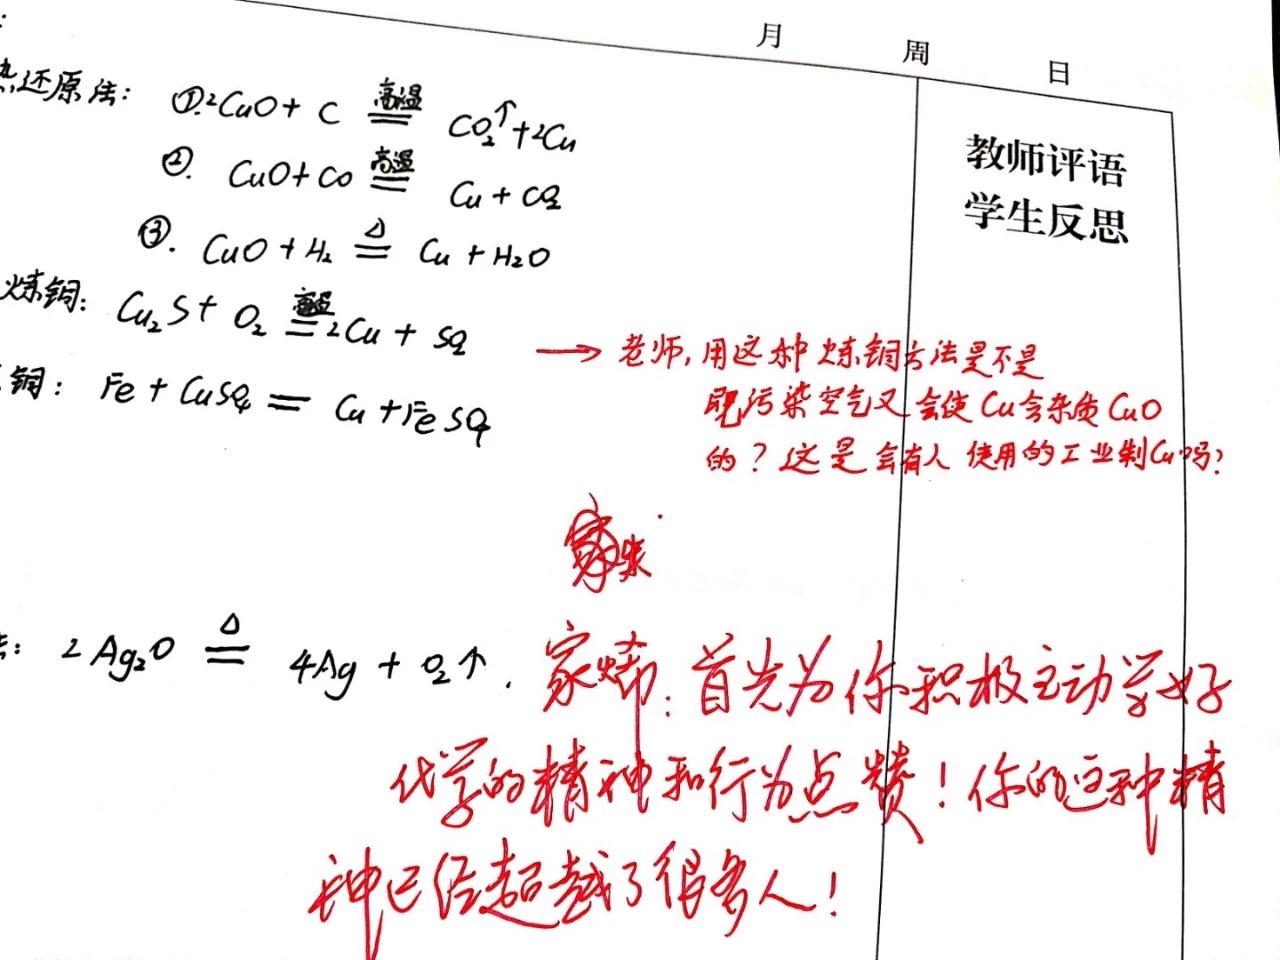 月 周 日
还原法: ①.2CuO + C 高温== CO₂↑+2Cu
教师评语
②. CuO + CO 高温== Cu + CO₂
学生反思
③. CuO + H₂ △== Cu + H₂O
炼铜: Cu₂S + O₂ 高温== 2Cu + SO₂
→ 老师,用这种炼铜方法是不是
铜: Fe + CuSO₄ == Cu + FeSO₄
既污染空气又会使Cu含杂质CuO
的?这是会有人使用的工业制Cu吗?
2Ag₂O △== 4Ag + O₂↑.
家烯:首先为你积极主动学好
化学的精神和行为点赞!你的这种精
神已经超越了很多人!